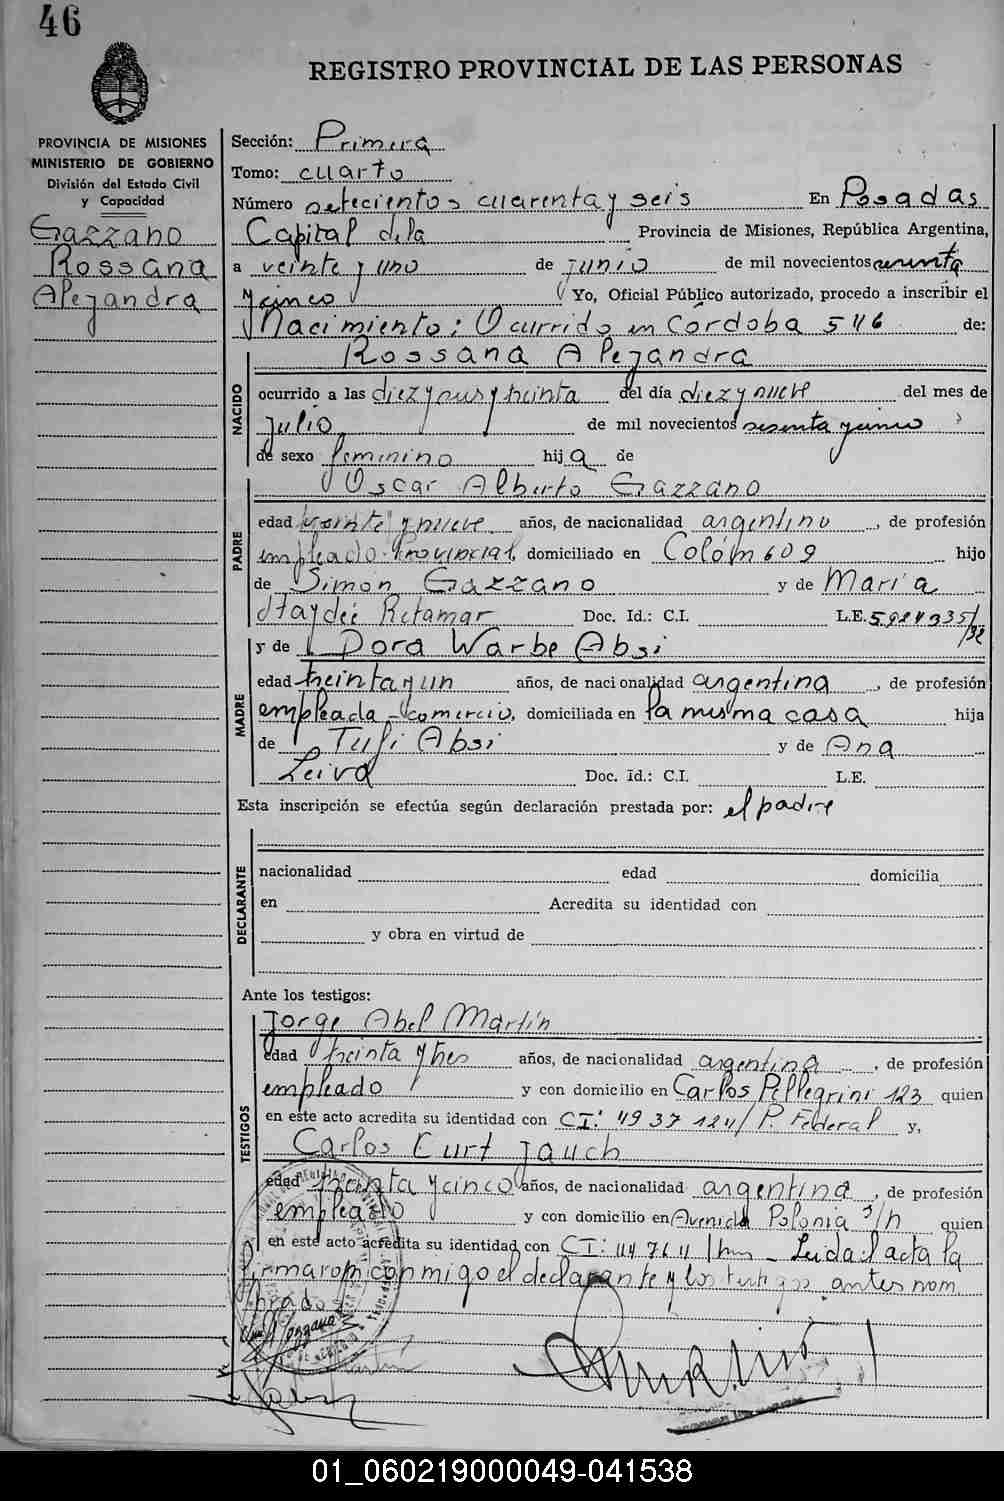 46
REGISTRO PROVINCIAL DE LAS PERSONAS
PROVINCIA DE MISIONES
MINISTERIO DE GOBIERNO
División del Estado Civil
y Capacidad
Gazzano
Rossana
Alejandra
Sección: Primera
Tomo: cuarto
Número setecientos cuarenta y seis En Posadas
Capital de la Provincia de Misiones, República Argentina,
a veinte y uno de junio de mil novecientos sesenta
y cinco Yo, Oficial Público autorizado, procedo a inscribir el
Nacimiento: Ocurrido en Córdoba 546 de:
Rossana Alejandra
NACIDO
ocurrido a las diez y treinta del día diez y nueve del mes de
Julio de mil novecientos sesenta y cinco
de sexo femenino hija de
Oscar Alberto Gazzano
PADRE
edad veinte y nueve años, de nacionalidad argentino, de profesión
empleado Provincial, domiciliado en Colón 609 hijo
de Simon Gazzano y de Maria
Haydeé Retamar Doc. Id.: C.I. L.E. 5924335/32
y de Dora Warbe Absi
MADRE
edad treinta y un años, de nacionalidad argentina, de profesión
empleada - comercio, domiciliada en la misma casa hija
de Tufi Absi y de Ana
Leiva Doc. Id.: C.I. L.E.
Esta inscripción se efectúa según declaración prestada por: el padre
DECLARANTE
nacionalidad edad domicilia
en Acredita su identidad con
y obra en virtud de
Ante los testigos:
TESTIGOS
Jorge Abel Martín
edad treinta y tres años, de nacionalidad argentina, de profesión
empleado y con domicilio en Carlos Pellegrini 123 quien
en este acto acredita su identidad con CI: 4937124/P. Federal y,
Carlos Curt Jauch
edad treinta y cinco años, de nacionalidad argentina, de profesión
empleado y con domicilio en Avenida Polonia s/n quien
en este acto acredita su identidad con CI: Leida el acta la
firmaron conmigo el declarante y los testigos antes nom
brados
01_060219000049-041538